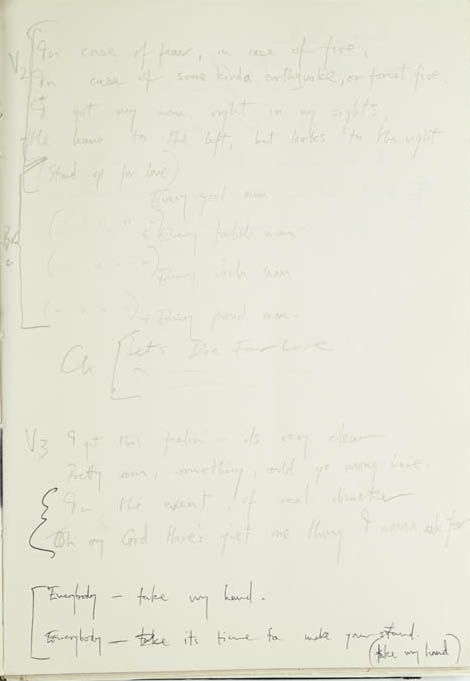 V2 In case of fear, in case of fire,
In case of some kinda earthquake, or forest fire
I got my man right in my sights,
He leans to the left, but looks to the right
(Stand up for love)
Every good man
(- " " ") + Every foolish man
(- " " ") Every rich man
(- " " ") + Every proud man.
Ch [Let's Die For Love
V3 I got this feelin - its very clear
Pretty soon, something, could go wrong here.
In the event of real disaster
Oh my God there's just one thing I wanna ask for
Everybody - take my hand.
Everybody - its time to make your stand.
(take my hand)